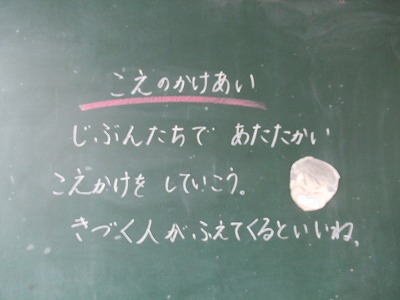 こえのかけあい
じぶんたちで あたたかい
こえかけを していこう。
きづく人が、ふえてくるといいね。